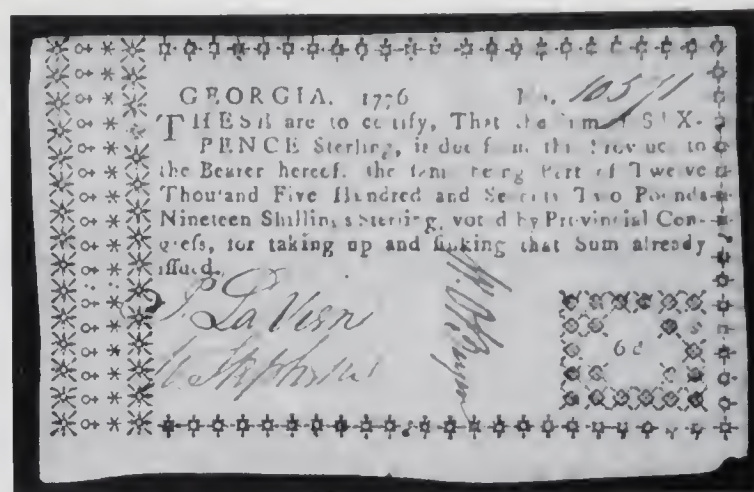 GEORGIA. 1776 No. 10571
THESE are to certify, That the Sum of SIX-
PENCE Sterling, is due from this Province to
the Bearer hereof, the same being Part of Twelve
Thousand Five Hundred and Seventy Two Pounds
Nineteen Shillings Sterling, voted by Provincial Con-
gress, for taking up and sinking that Sum already
issued.
P. La Vien
W. Stephens
6d